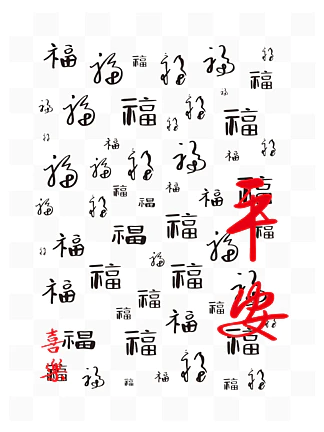 福 福 福 福 福 福 福
福 福 福 福 福 福 福 福
福 福
福 福 福 福 福 福
福 福 福 福
福 福 福 福 福
福 福 福 福 福
福 福 福 福
福 福 福 福
福 福 福 福
福 福 福 福
福 福 福 福 福 福 福
平安
喜樂